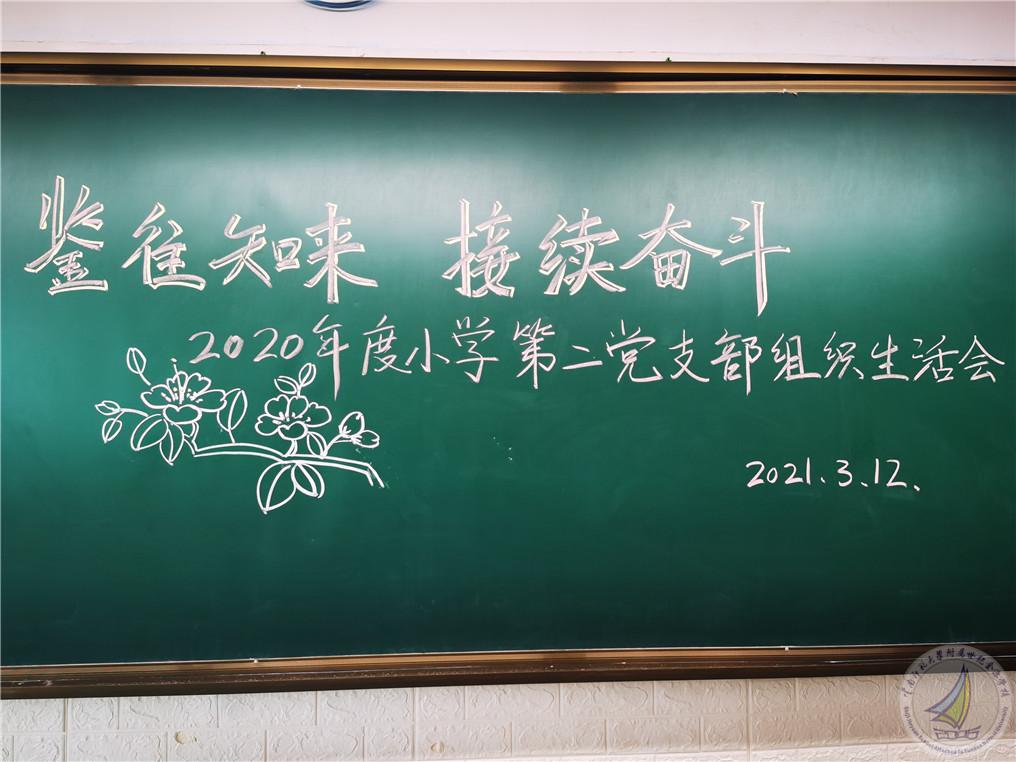 鉴往知来 接续奋斗
2020年度小学第二党支部组织生活会
2021.3.12.